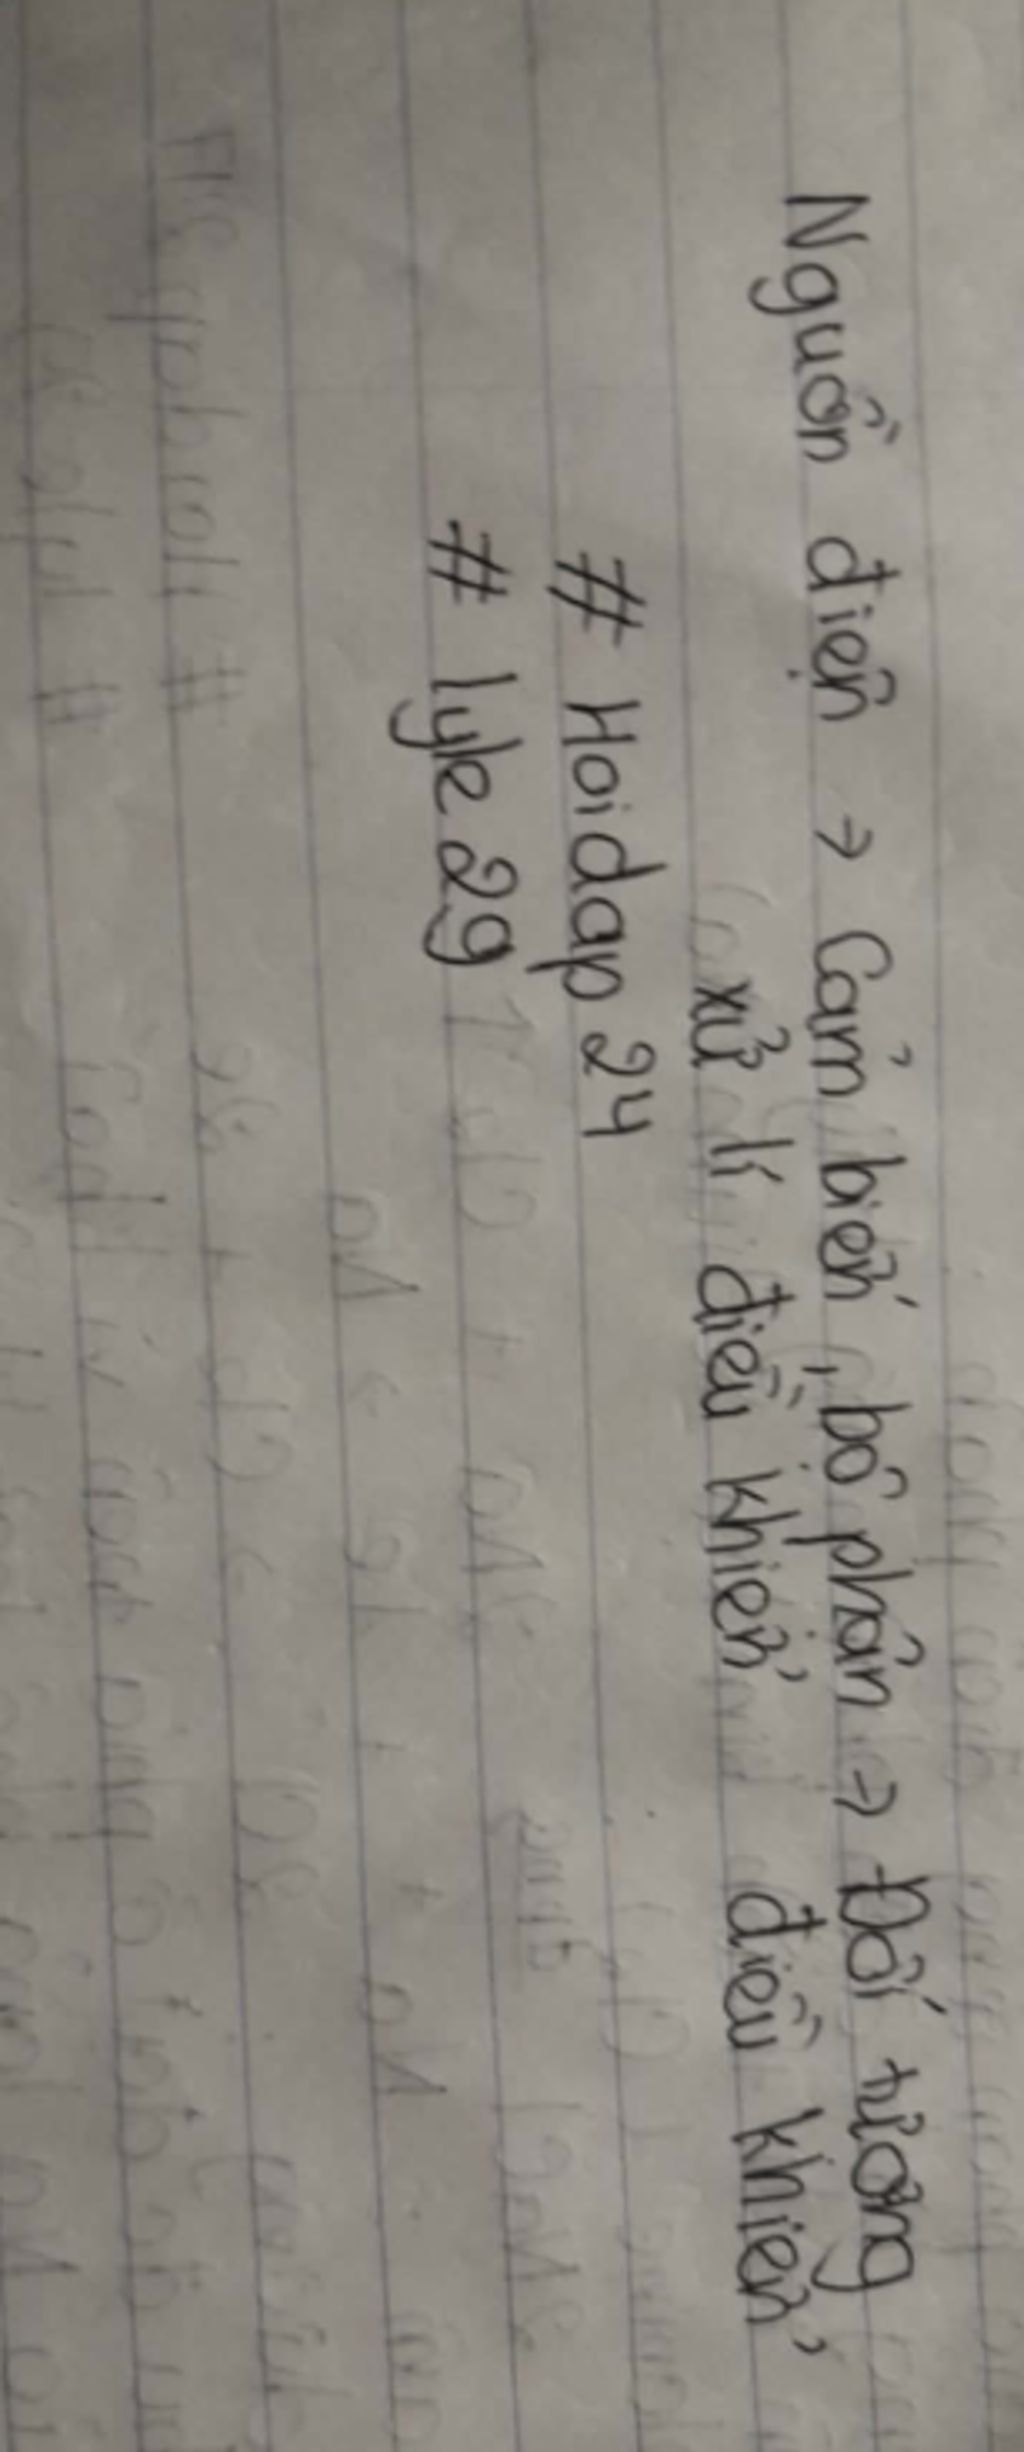 Nguồn điện → Cảm biến, bộ phận → Đối tượng
xử lí điều khiển điều khiển
# Hoidap 24
# lyle 29